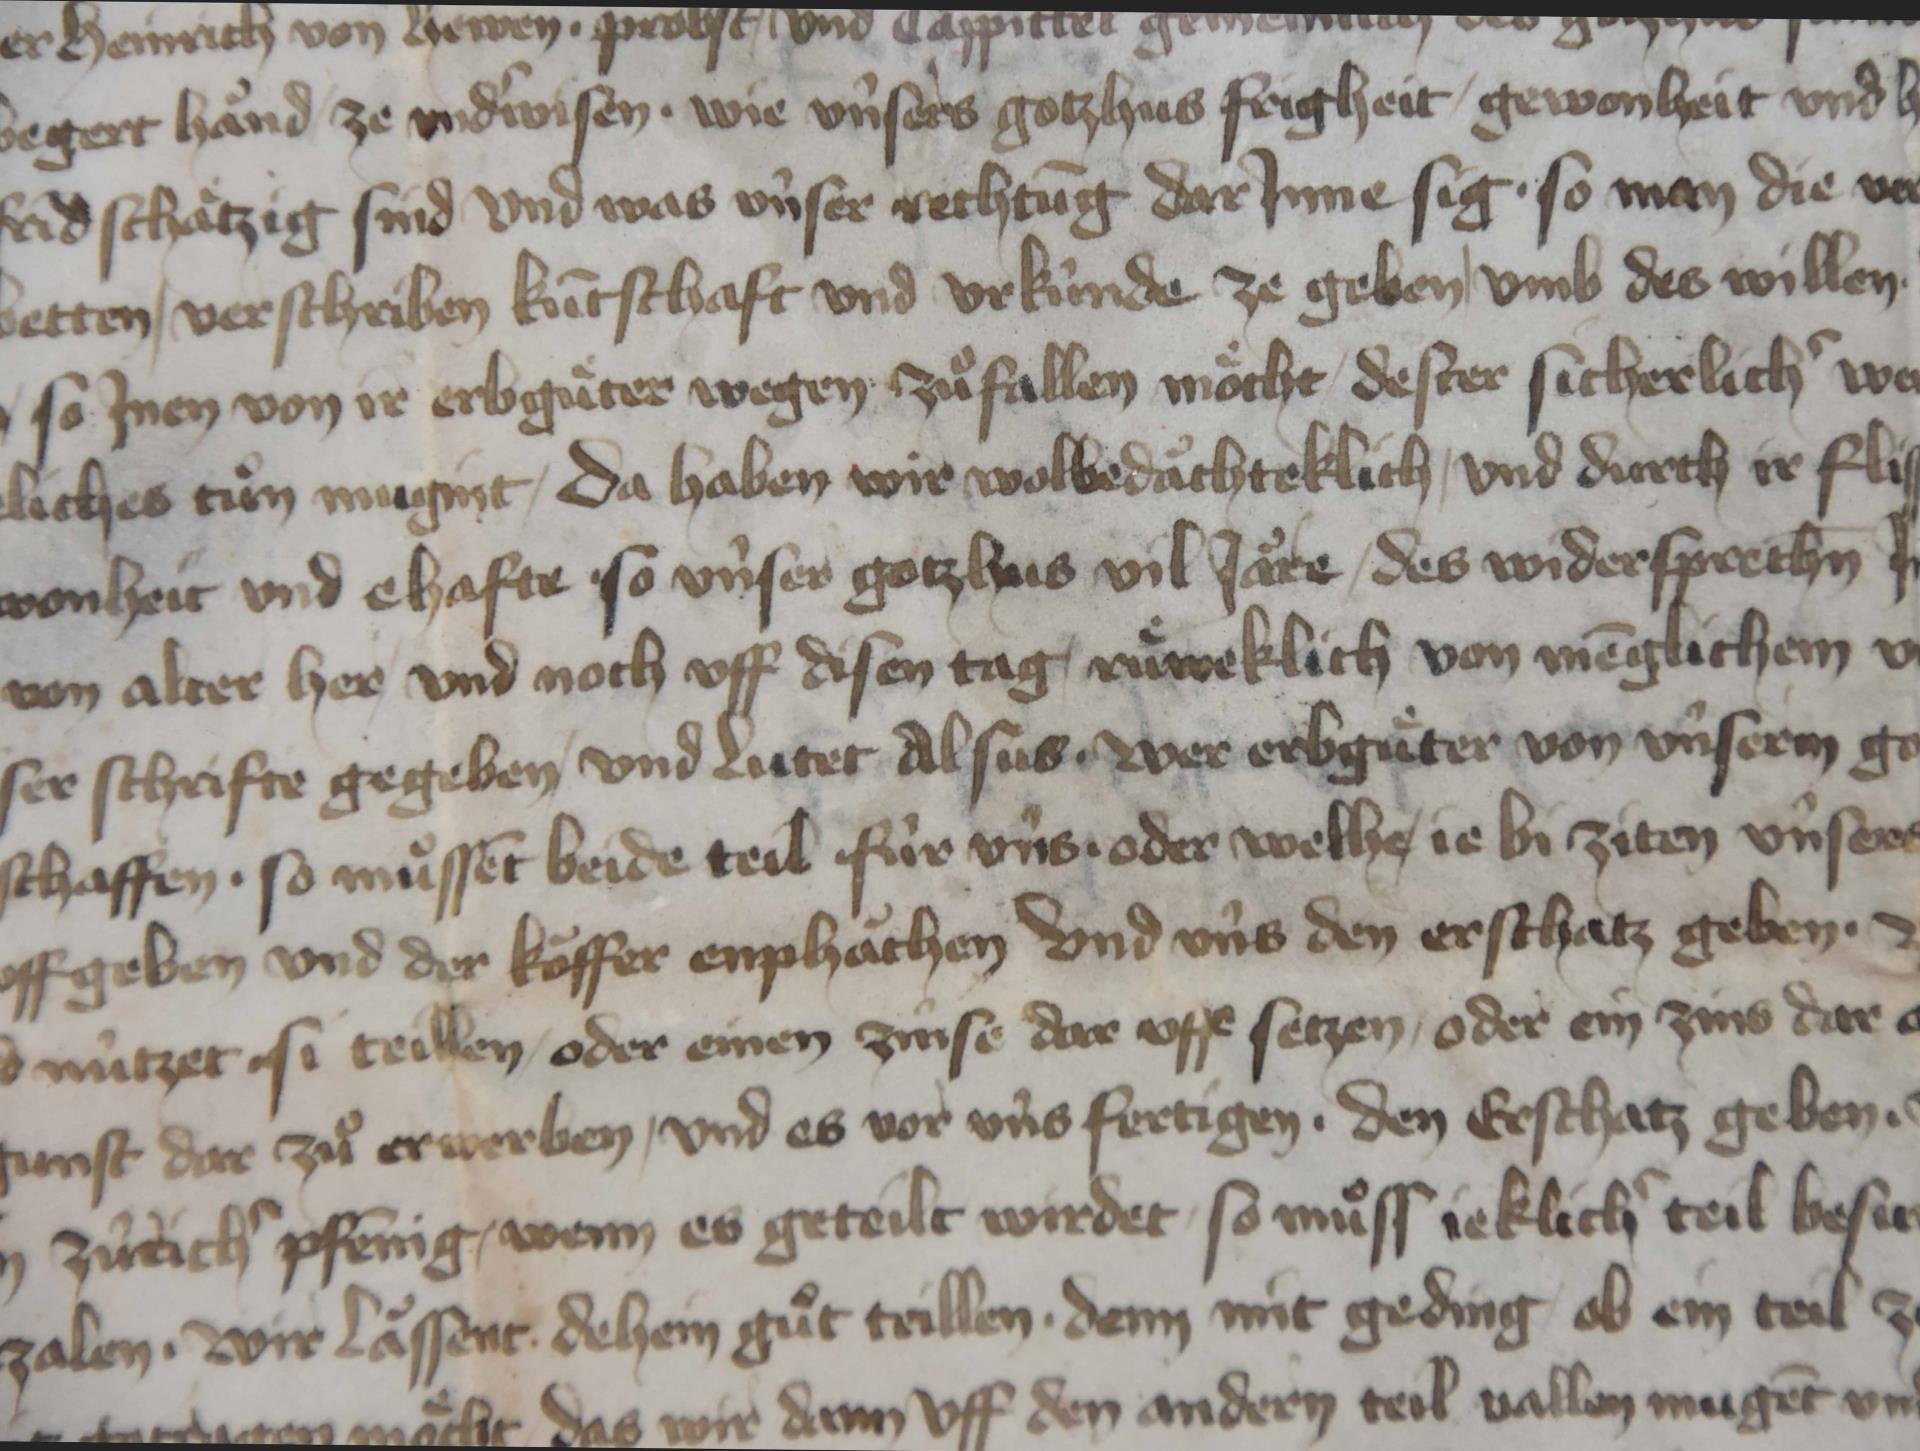 er Heinrich von Hewen · probst / vnd Cappittel gemeinlich des gotzhus
begert haͤnd / ze vndʼwisen · wie vn̂sers gotzhus frigheit / gewonheit vnd
schaͤtzig sind Vnd was vn̂ser rechtūg dar Jnne sig · so man die
betten / verschriben kūtschaft vnd vrkûnde ze geben / vmb des willen ·
so Jnen von ir erbguͤter wegen zuͦfallen moͤcht / dester sicherlichʼ
liches tuͦn mugint / Da haben wir wolbedaͤchteklich / vnd durch ir flis
wonheit vnd ehafte so vn̂ser gotzhus vil Jaͤre / des widersprechn̄
von alter her / vnd noch vff disen tag / ruͤweklich von mēglichem
ser schrifte gegeben / vnd lutet Alsus · wer erbguͤter von vn̂serm
schaffen · so muͦssēt beide teil fûr vn̂s · oder welhe / ie bi ziten vn̂sers
vffgeben vnd der koͤffer enphaͤchen Vnd vn̂s den erschatz geben ·
nûtzet · si teillen / oder einen zinse dar vffe setzen / oder ein zins dar
gunst dar zuͦ erwerben / vnd es vor vn̂s fertigen · den Erschatz geben ·
zûrichʼ pfēnig / wenn es geteilt wirdet / so muͦss ieklichʼ teil
zalen · wir laͤssent dehein guͦt teillen · denn mit geding / ob ein teil
getragen moͤcht / das wir dann vff den andern teil vallen mugēt vnd